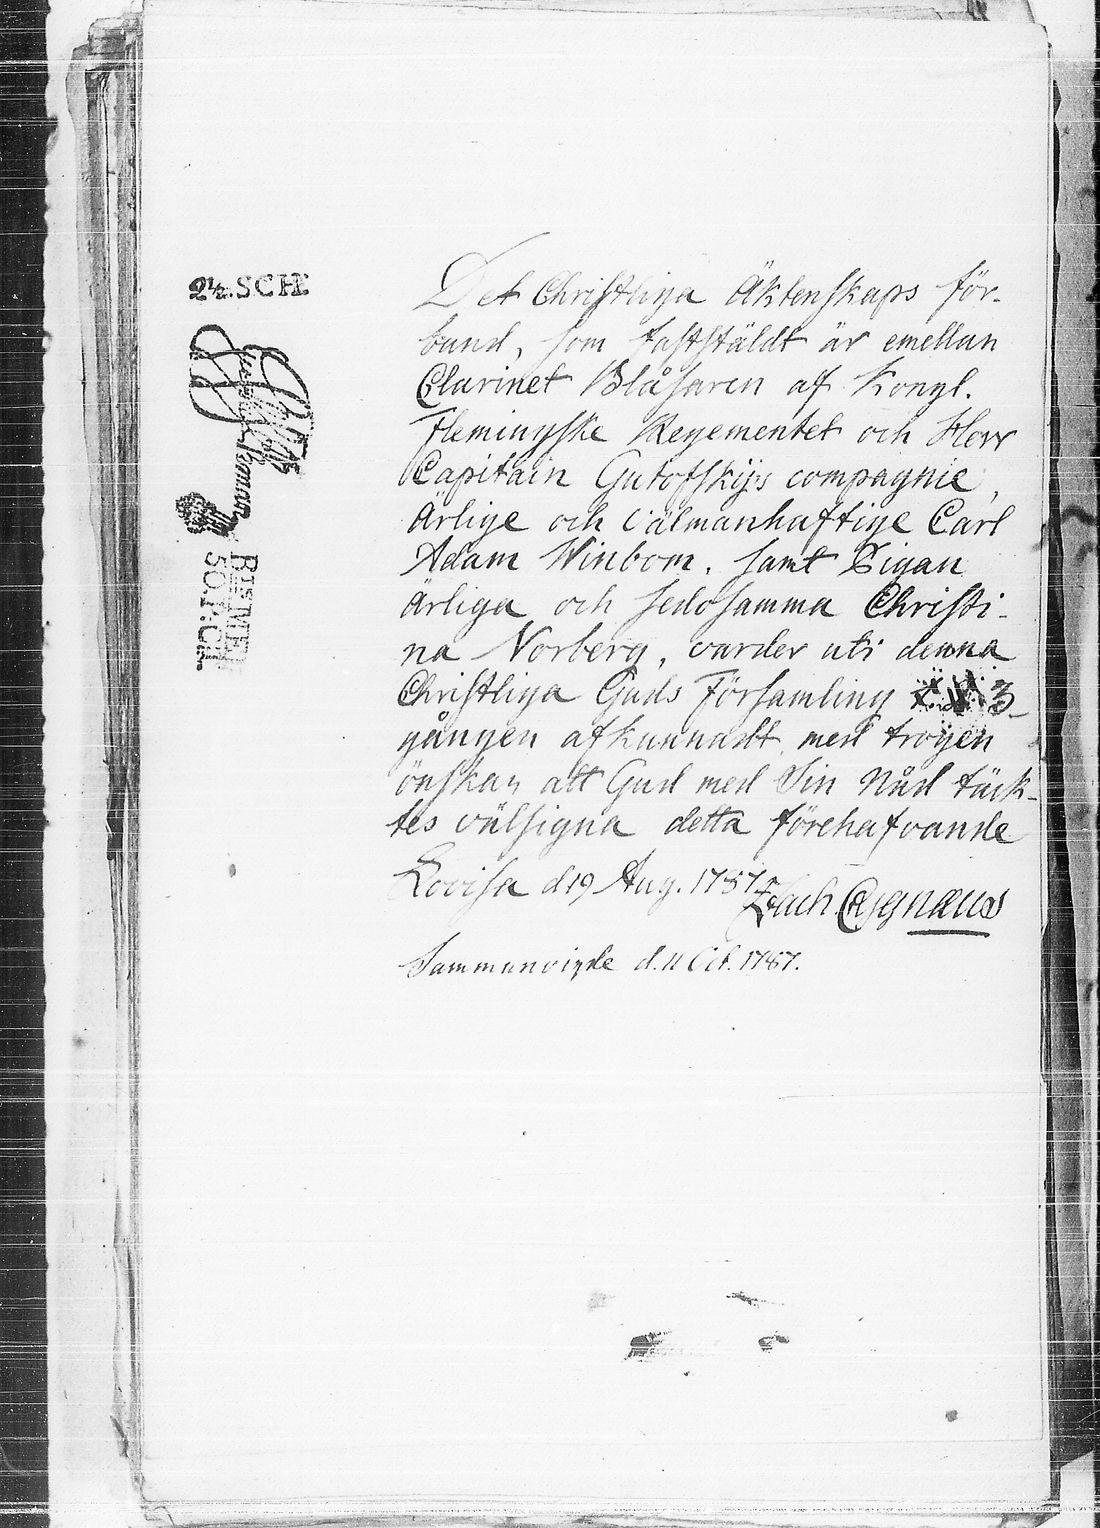 2½.SCH:
Det Christliga Äktenskaps för-
bund, som fastställdt är emellan
Clarinet Blåsaren af Kongl.
Flemingske Regementet och Herr
Capitain Gutofskijs compagnie,
Ärlige och välmanhaftige Carl
Adam Winbom, samt Pigan
ärliga och sedosamma Christi-
na Norberg, varder uti denna
Christliga Guds Församling 3
gången afkunnadt, med trogen
önskan att Gud med Sin Nåd täck-
tes välsigna detta förehafvande
Lovisa d 19 Aug. 1787.
Zach. Cygnæus
Sammanvigde d. 11 Oct. 1787.